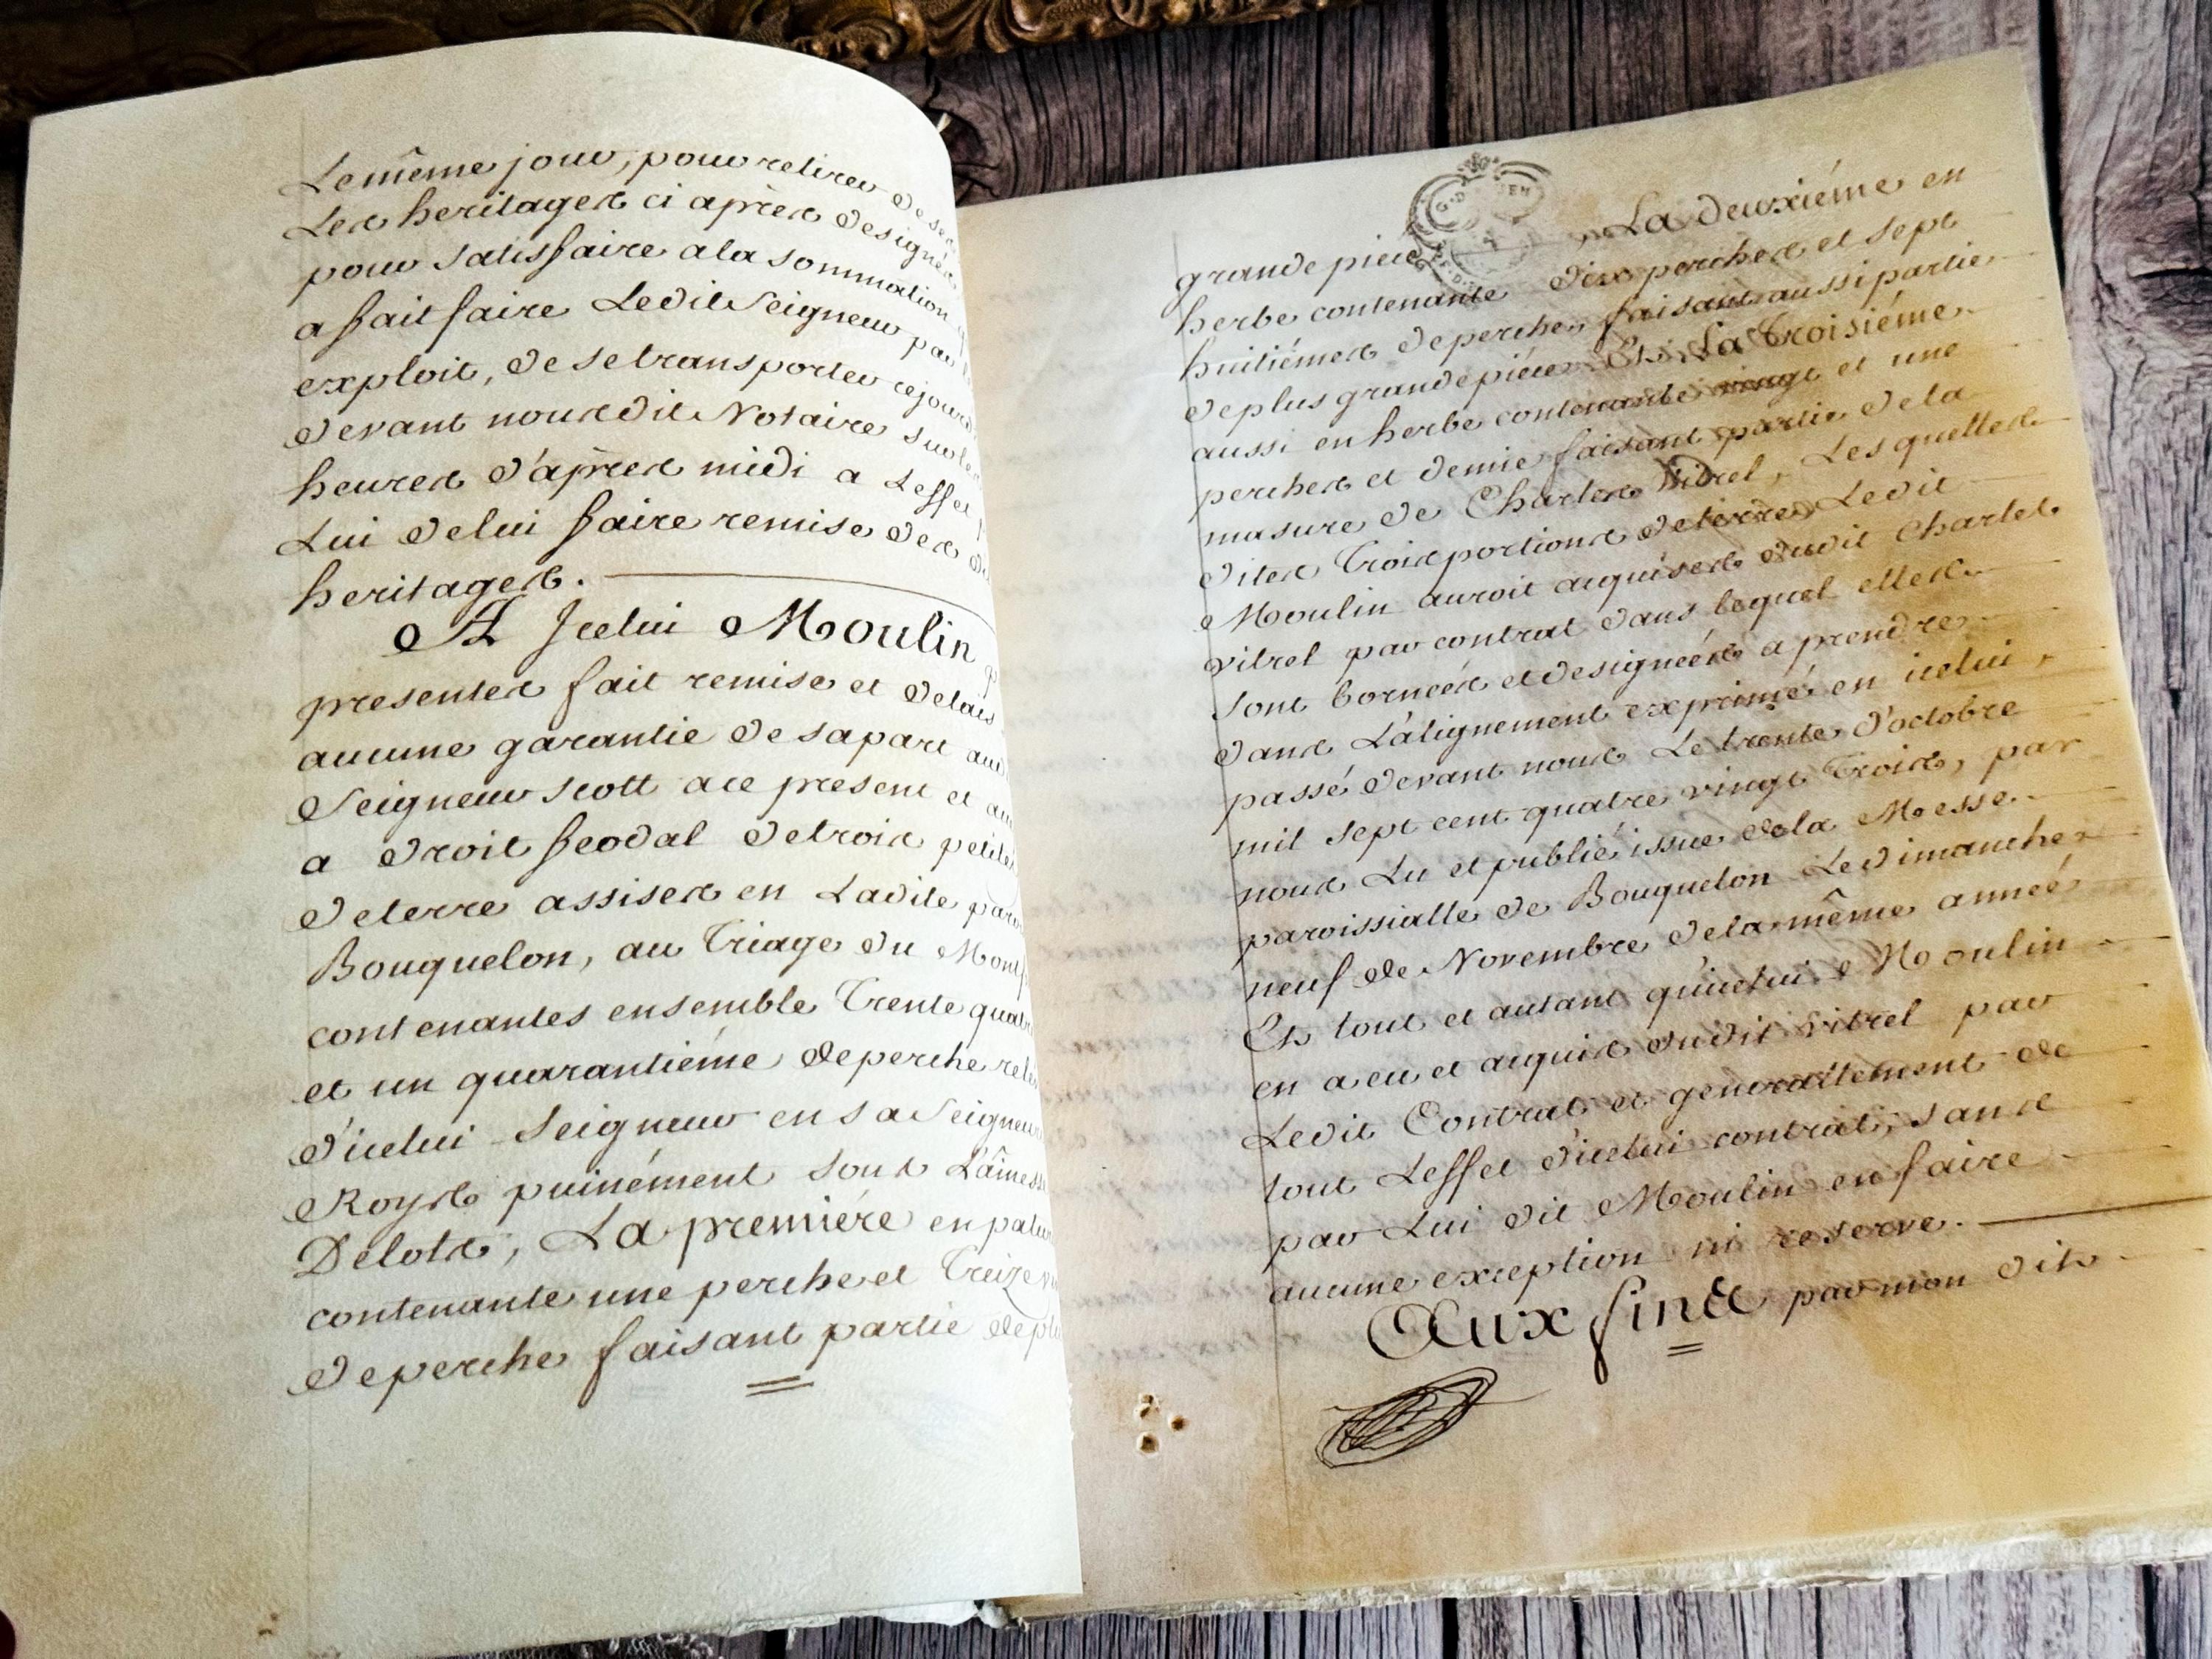 Le même jour, pour retirer de ses
Les heritages ci après designés
pour satisfaire a la sommation
a fait faire Ledit Seigneur par
exploit, de se transporter cejourd
devant nous dit Notaire sur les
heures d'après midi a Leffet
Lui de lui faire remise des
heritages.
A Jcelui Moulin
presentes fait remise et delais
aucune garantie de sa part au
Seigneur scott a ce present et
a droit feodal de trois petites
de terre assises en Ladite paro
Bouquelon, au Triage du Mont
contenantes ensemble Trente quatre
et un quarantiéme de perche rele
d'icelui Seigneur en sa Seigneu
Roys puinément sous L'aînesse
Delots, La premiére en patur
contenante une perche et Treize
de perche faisant partie de plu
grande piéce, La deuxiéme en
herbe contenante dix perches et sept
huitiémes de perche, faisant aussi partie
de plus grande piéce Et La Troisiéme
aussi en herbe contenante vingt et une
perches et demie faisant partie de la
masure de Charles Vitrel, Les quelles
dites Trois portions de terre, Ledit
Moulin auroit acquises dudit Charles
vitrel par contrat dans lequel elles
sont bornées et designées a prendre
dans L'alignement exprimé en icelui,
passé devant nous Le trente d'octobre
mil sept cent quatre vingt Trois, par
nous Lu et publié issue de la Messe
paroissialle de Bouquelon Le dimanche
neuf de Novembre de la même année
Et tout et autant qu'icelui Moulin
en a eu et acquis dudit vitrel par
Ledit Contrat et generallement de
tout Leffet d'icelui contrat, sans
par Lui dit Moulin en faire
aucune exception ni reserve.
Aux fins par mon dit